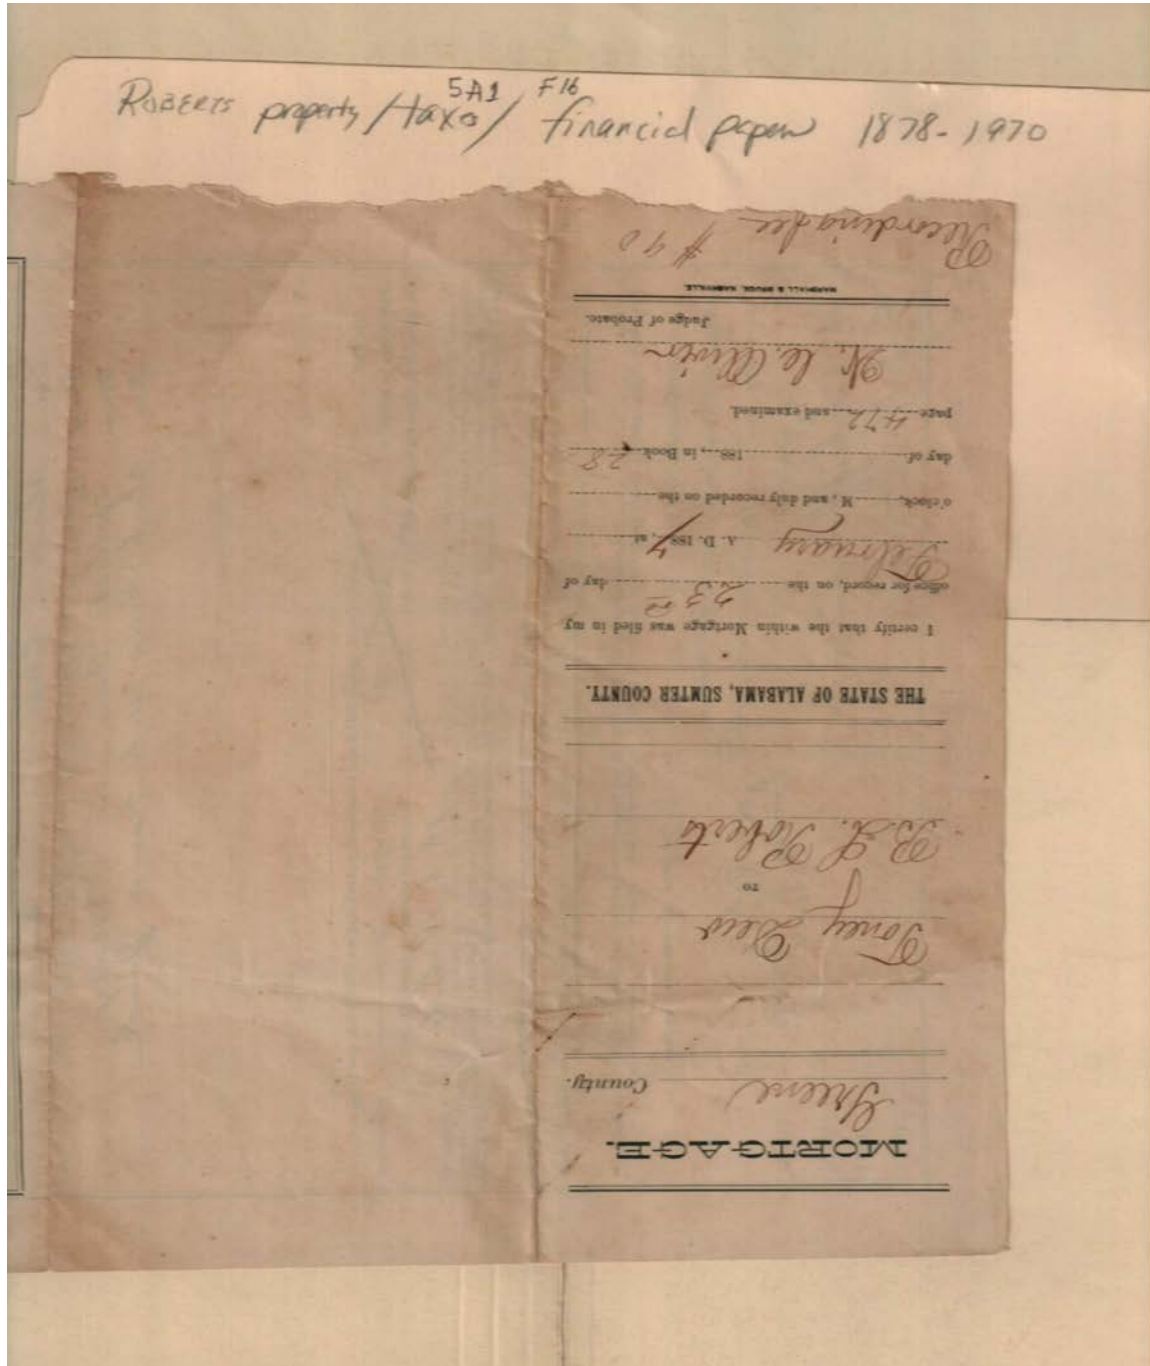 5A1 F16
ROBERTS property/taxes/ financial papers 1878-1970
MORTGAGE.
Greene County.
Toney Dew
TO
B. L. Roberts
THE STATE OF ALABAMA, SUMTER COUNTY.
I certify that the within Mortgage was filed in my
office for record, on the 23rd day of
February A. D. 1887, at
o'clock, M, and duly recorded on the
day of 188 , in Book 28
page 472 and examined.
Judge of Probate.
MARSHALL & BRUCE, NASHVILLE.
Recording fee #40